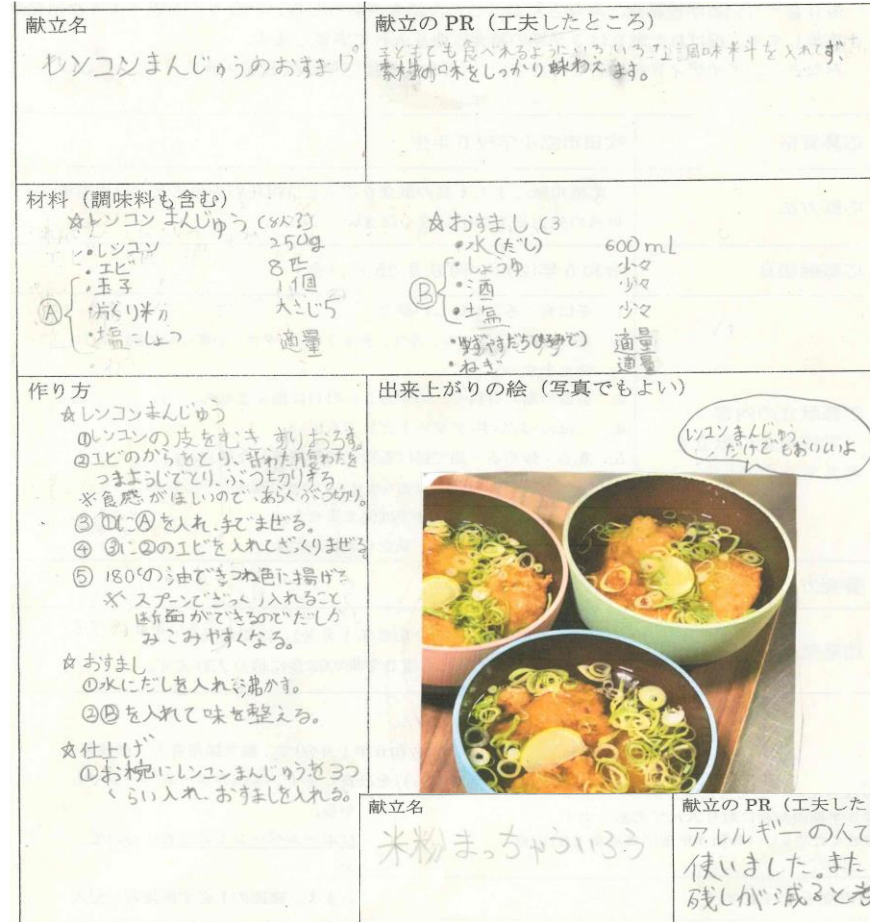 献立名
レンコンまんじゅうのおすまし
献立のPR(工夫したところ)
こどもでも食べれるようにいろいろな調味料を入れてず、
素材の味をしっかり味わえます。
材料(調味料も含む)
☆レンコンまんじゅう
・レンコン 250g
・エビ 8匹
Ⓐ
・玉子 1個
・片くり粉 大さじ5
・塩こしょう 適量
☆おすまし
・水(だし) 600mL
Ⓑ
・しょうゆ 少々
・酒 少々
・塩 少々
適量
・ねぎ 適量
作り方
☆レンコンまんじゅう
①レンコンの皮をむき すりおろす。
②エビのからをとり、背わた
つまようじでとり、ぶつ切りする
※食感がほしいので、あらくぶつ切り。
③①にⒶを入れ、まぜる。
④③に②のエビを入れてざっくりまぜる
⑤180°の油できつね色に揚げる
※スプーンでざっくり入れること
断面ができるのでだしが
みこみやすくなる。
☆おすまし
①水にだしを入れ沸かす。
②Ⓑを入れて味を整える。
☆仕上げ
①お椀にレンコンまんじゅうを3つ
くらい入れ、おすましを入れる。
出来上がりの絵(写真でもよい)
レンコンまんじゅう
だけでもおいしいよ
献立名
米粉まっちゃういろう
献立のPR(工夫した
アレルギーの人で
使いました。また
残しが減ると考